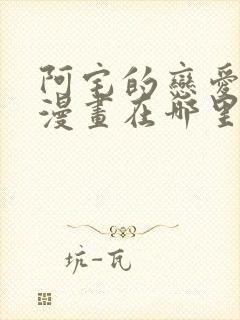 阿宅的戀愛
漫畫在哪里
坑-瓦